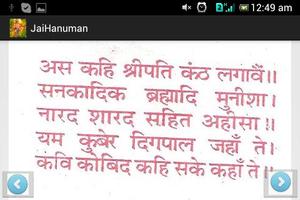 12:49 am
JaiHanuman
अस कहि श्रीपति कंठ लगावैं।।
सनकादिक ब्रह्मादि मुनीशा।
नारद शारद सहित अहीसा।।
यम कुबेर दिगपाल जहाँ ते।
कवि कोबिद कहि सके कहाँ ते।।